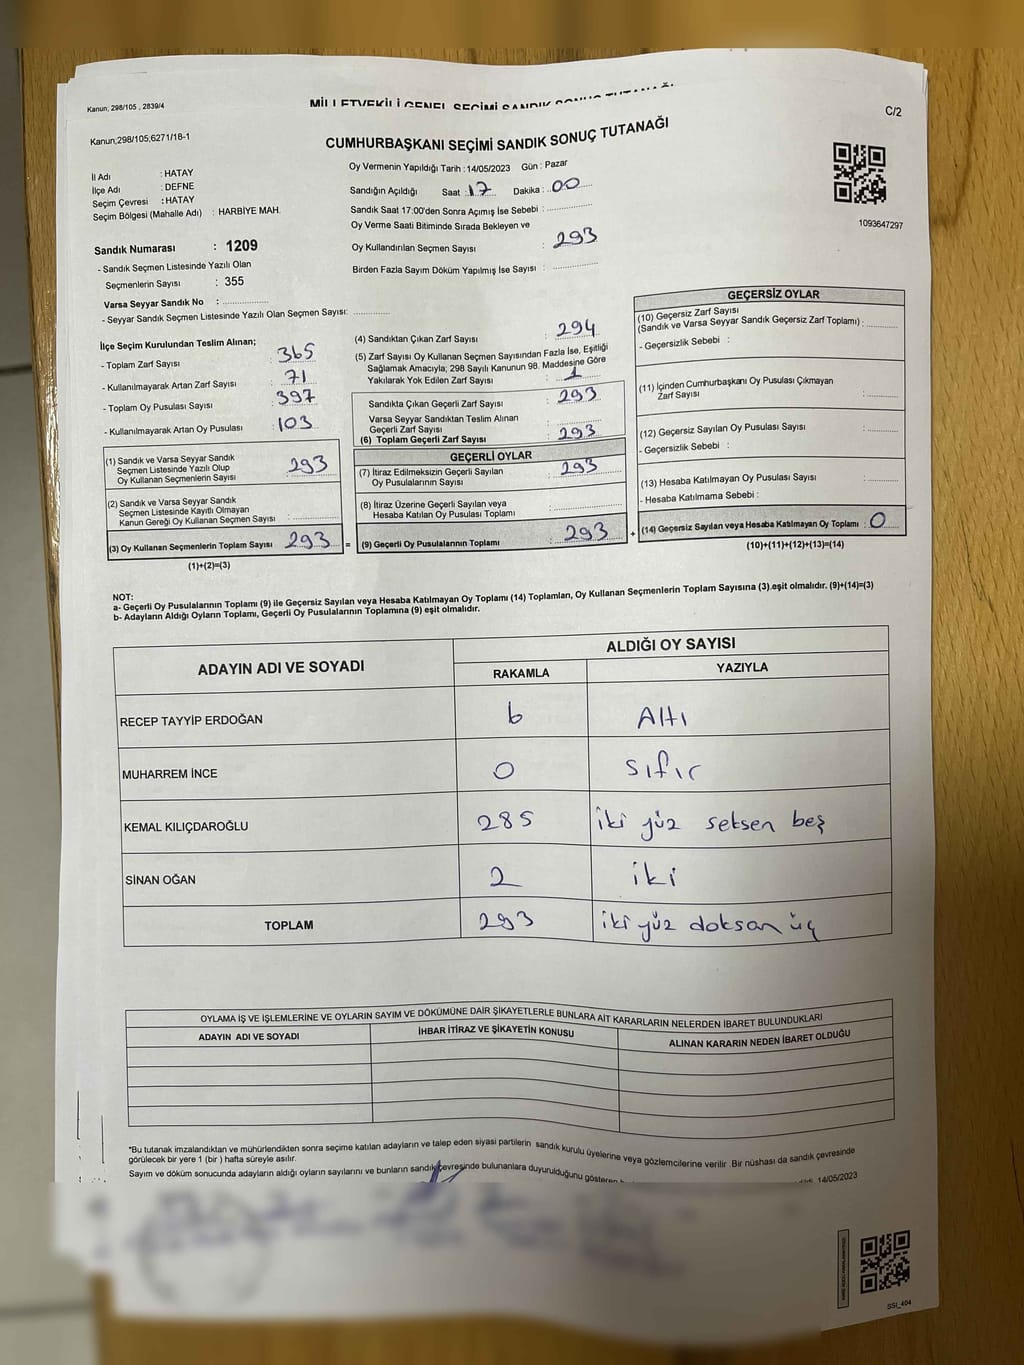 Kanun, 298/105 , 2839/4
MİLLETVEKİLİ GENEL SEÇİMİ SANDIK SONUÇ TUTANAĞI
C/2
Kanun,298/105,6271/18-1
CUMHURBAŞKANI SEÇİMİ SANDIK SONUÇ TUTANAĞI
İl Adı : HATAY
İlçe Adı : DEFNE
Seçim Çevresi : HATAY
Seçim Bölgesi (Mahalle Adı) : HARBİYE MAH.
Oy Vermenin Yapıldığı Tarih : 14/05/2023 Gün : Pazar
Sandığın Açıldığı Saat : 17 Dakika : 00
Sandık Saat 17:00'den Sonra Açımış İse Sebebi :
Oy Verme Saati Bitiminde Sırada Bekleyen ve
Oy Kullandırılan Seçmen Sayısı : 293
Birden Fazla Sayım Döküm Yapılmış İse Sayısı :
1093647297
Sandık Numarası : 1209
- Sandık Seçmen Listesinde Yazılı Olan
Seçmenlerin Sayısı : 355
Varsa Seyyar Sandık No :
- Seyyar Sandık Seçmen Listesinde Yazılı Olan Seçmen Sayısı:
İlçe Seçim Kurulundan Teslim Alınan;
- Toplam Zarf Sayısı : 365
- Kullanılmayarak Artan Zarf Sayısı : 71
- Toplam Oy Pusulası Sayısı : 397
- Kullanılmayarak Artan Oy Pusulası : 103
(1) Sandık ve Varsa Seyyar Sandık
Seçmen Listesinde Yazılı Olup
Oy Kullanan Seçmenlerin Sayısı : 293
(2) Sandık ve Varsa Seyyar Sandık
Seçmen Listesinde Kayıtlı Olmayan
Kanun Gereği Oy Kullanan Seçmen Sayısı :
(3) Oy Kullanan Seçmenlerin Toplam Sayısı : 293 =
(1)+(2)=(3)
(4) Sandıktan Çıkan Zarf Sayısı : 294
(5) Zarf Sayısı Oy Kullanan Seçmen Sayısından Fazla İse, Eşitliği
Sağlamak Amacıyla; 298 Sayılı Kanunun 98. Maddesine Göre
Yakılarak Yok Edilen Zarf Sayısı : 1
Sandıkta Çıkan Geçerli Zarf Sayısı : 293
Varsa Seyyar Sandıktan Teslim Alınan
Geçerli Zarf Sayısı :
(6) Toplam Geçerli Zarf Sayısı : 293
GEÇERLİ OYLAR
(7) İtiraz Edilmeksizin Geçerli Sayılan
Oy Pusulalarının Sayısı : 293
(8) İtiraz Üzerine Geçerli Sayılan veya
Hesaba Katılan Oy Pusulası Toplamı :
(9) Geçerli Oy Pusulalarının Toplamı : 293 +
GEÇERSİZ OYLAR
(10) Geçersiz Zarf Sayısı
(Sandık ve Varsa Seyyar Sandık Geçersiz Zarf Toplamı) :
- Geçersizlik Sebebi :
(11) İçinden Cumhurbaşkanı Oy Pusulası Çıkmayan
Zarf Sayısı :
(12) Geçersiz Sayılan Oy Pusulası Sayısı :
- Geçersizlik Sebebi :
(13) Hesaba Katılmayan Oy Pusulası Sayısı :
- Hesaba Katılmama Sebebi :
(14) Geçersiz Sayılan veya Hesaba Katılmayan Oy Toplamı : 0
(10)+(11)+(12)+(13)=(14)
NOT:
a- Geçerli Oy Pusulalarının Toplamı (9) ile Geçersiz Sayılan veya Hesaba Katılmayan Oy Toplamı (14) Toplamları, Oy Kullanan Seçmenlerin Toplam Sayısına (3).eşit olmalıdır. (9)+(14)=(3)
b- Adayların Aldığı Oyların Toplamı, Geçerli Oy Pusulalarının Toplamına (9) eşit olmalıdır.
ADAYIN ADI VE SOYADI ALDIĞI OY SAYISI
RAKAMLA YAZIYLA
RECEP TAYYİP ERDOĞAN 6 Altı
MUHARREM İNCE 0 sıfır
KEMAL KILIÇDAROĞLU 285 iki yüz seksen beş
SİNAN OĞAN 2 iki
TOPLAM 293 iki yüz doksan üç
OYLAMA İŞ VE İŞLEMLERİNE VE OYLARIN SAYIM VE DÖKÜMÜNE DAİR ŞİKAYETLERLE BUNLARA AİT KARARLARIN NELERDEN İBARET BULUNDUKLARI
ADAYIN ADI VE SOYADI İHBAR İTİRAZ VE ŞİKAYETİN KONUSU ALINAN KARARIN NEDEN İBARET OLDUĞU
*Bu tutanak imzalandıktan ve mühürlendikten sonra seçime katılan adayların ve talep eden siyasi partilerin sandık kurulu üyelerine veya gözlemcilerine verilir .Bir nüshası da sandık çevresinde
görülecek bir yere 1 (bir ) hafta süreyle asılır.
Sayım ve döküm sonucunda adayların aldığı oyların sayılarını ve bunların sandık çevresinde bulunanlara duyurulduğunu gösteren 14/05/2023
SSI_404